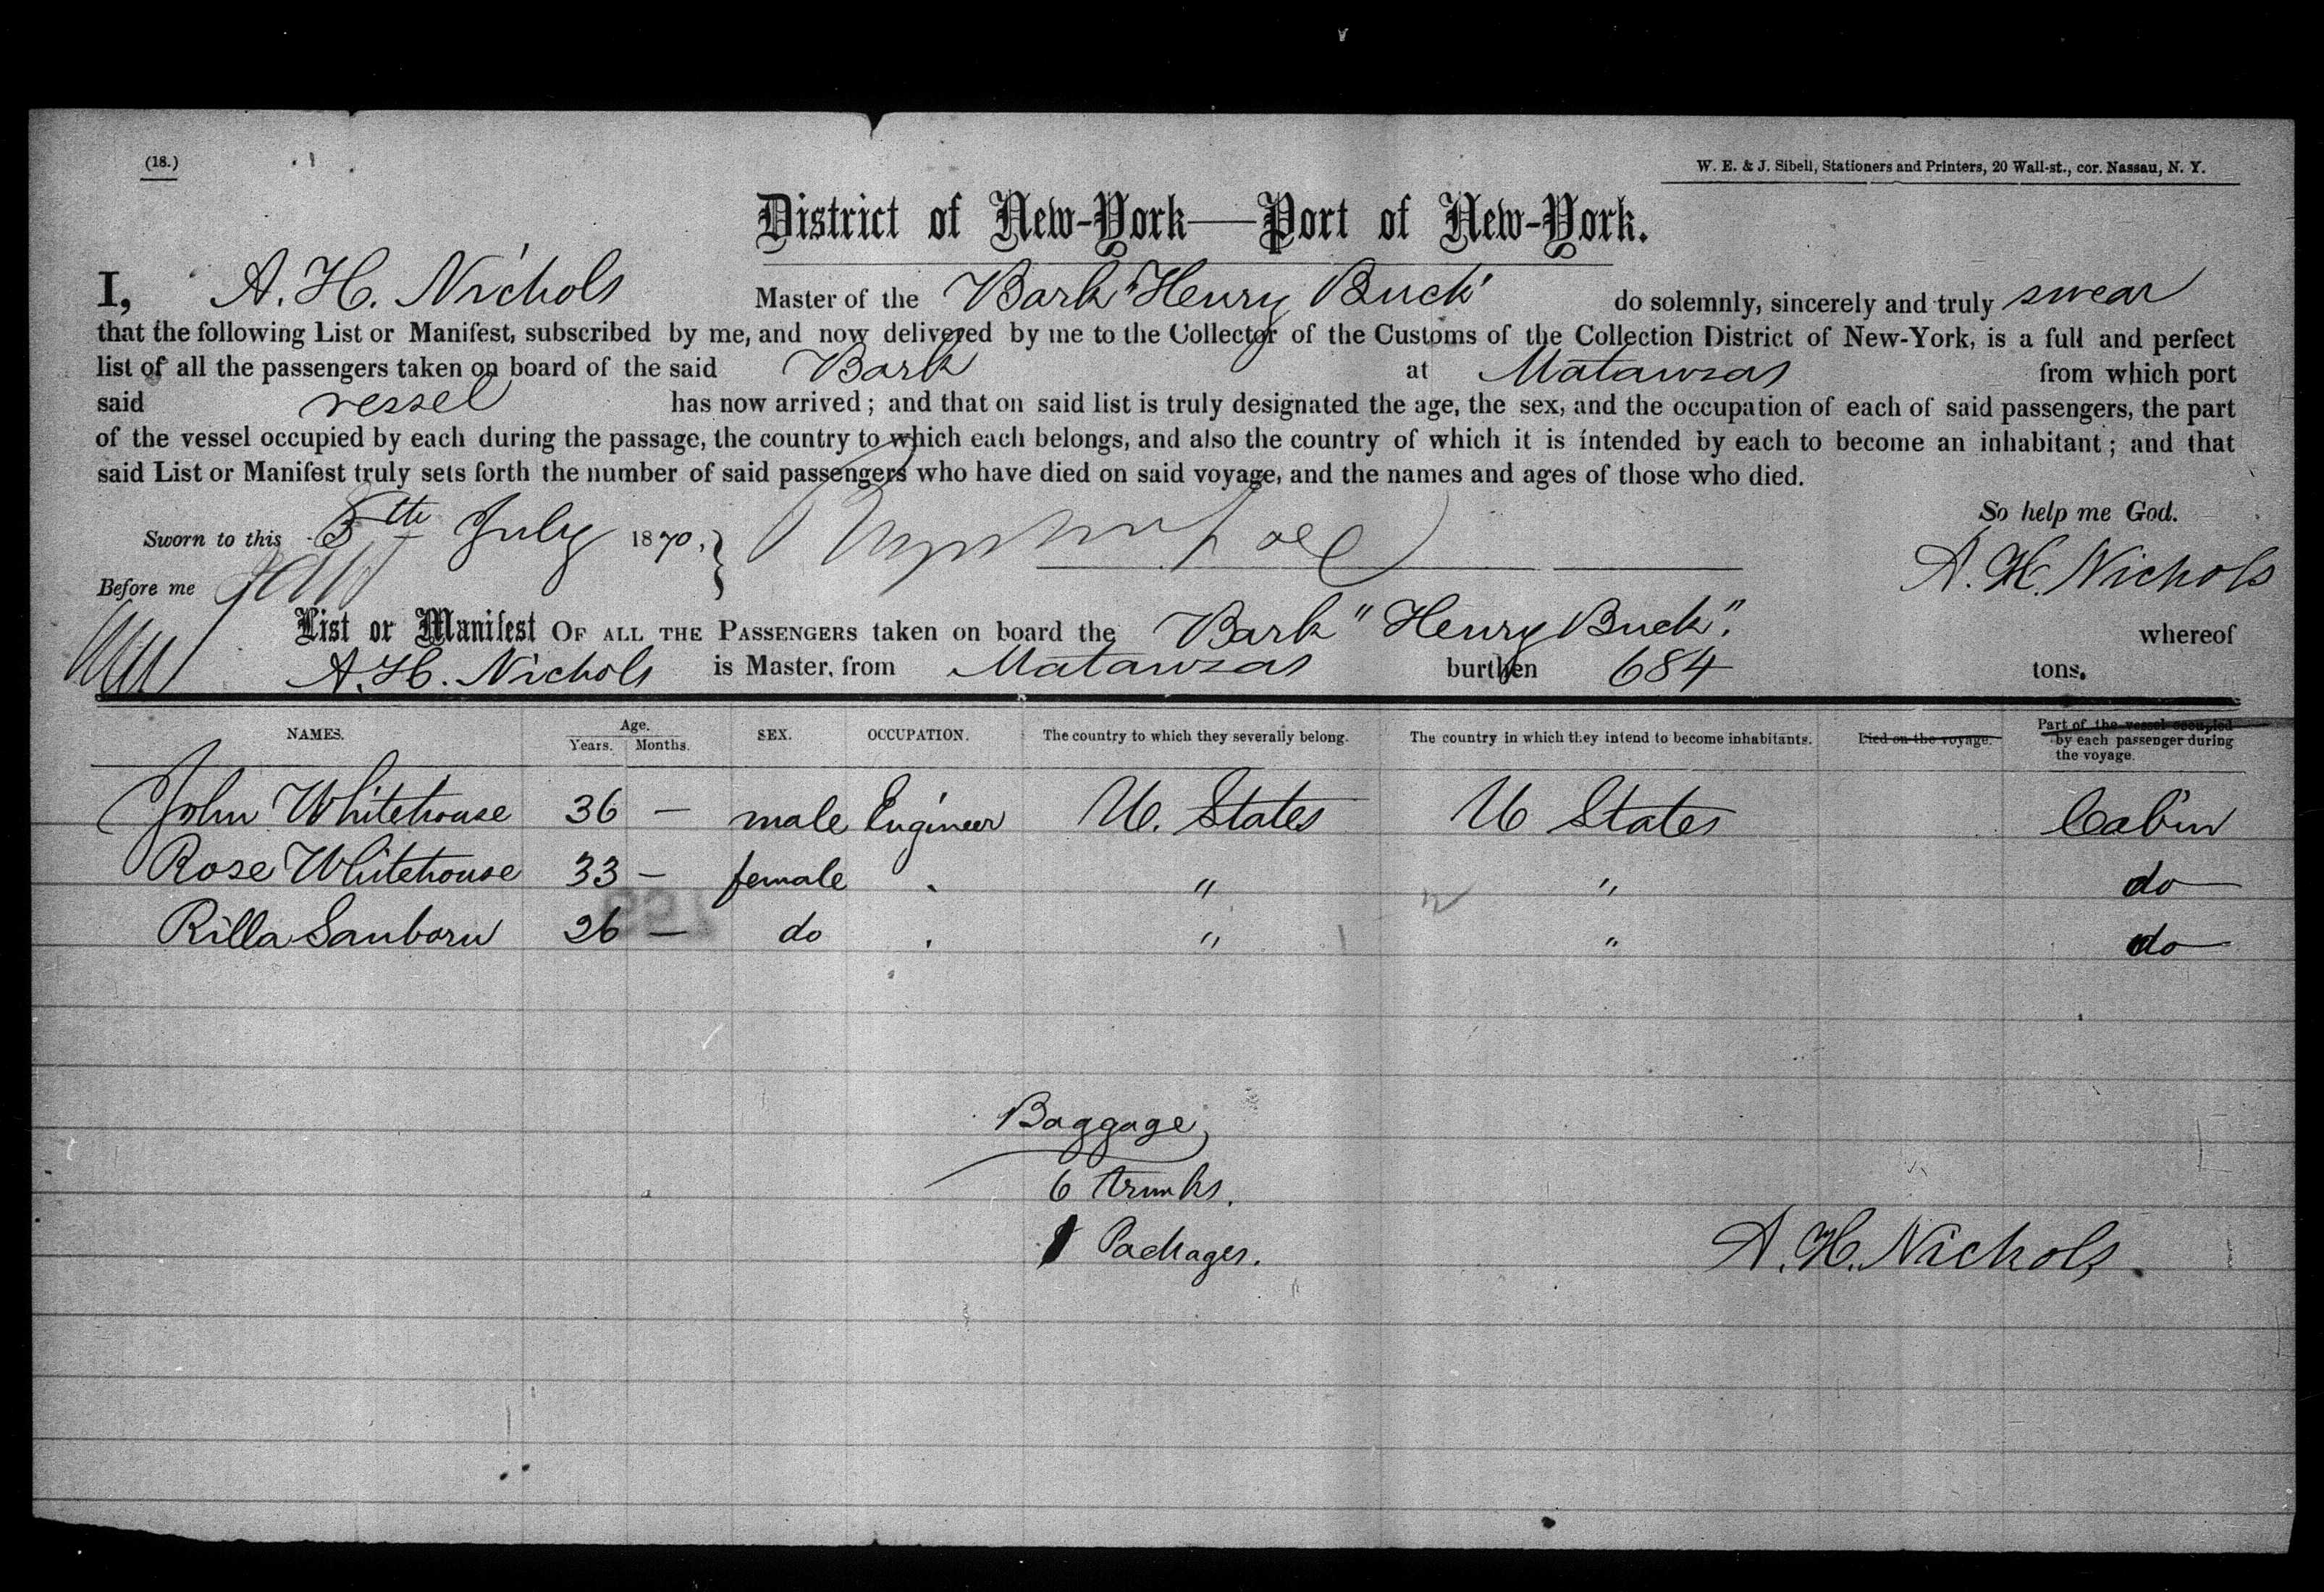 (18.)
W. E. & J. Sibell, Stationers and Printers, 20 Wall-st., cor. Nassau, N. Y.
District of New-York—Port of New-York.
I, A. H. Nichols Master of the Bark "Henry Buck" do solemnly, sincerely and truly swear
that the following List or Manifest, subscribed by me, and now delivered by me to the Collector of the Customs of the Collection District of New-York, is a full and perfect
list of all the passengers taken on board of the said Bark at Matanzas from which port
said vessel has now arrived; and that on said list is truly designated the age, the sex, and the occupation of each of said passengers, the part
of the vessel occupied by each during the passage, the country to which each belongs, and also the country of which it is intended by each to become an inhabitant; and that
said List or Manifest truly sets forth the number of said passengers who have died on said voyage, and the names and ages of those who died.
So help me God.
Sworn to this 5th July 1870,
A. H. Nichols
Before me
List or Manifest OF ALL THE PASSENGERS taken on board the Bark "Henry Buck". whereof
A. H. Nichols is Master, from Matanzas burthen 684 tons.
NAMES. Age. Years. Months. SEX. OCCUPATION. The country to which they severally belong. The country in which they intend to become inhabitants. Died on the voyage. Part of the vessel occupied by each passenger during the voyage.
John Whitehouse 36 — male Engineer U. States U States Cabin
Rose Whitehouse 33 — female " " do
Rilla Sanborn 26 — do " " do
Baggage
6 trunks.
1 Packages.
A. H. Nichols.